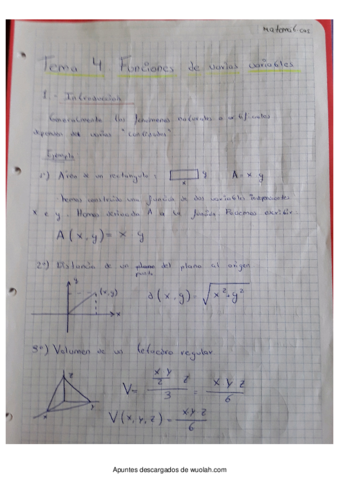 Matemáticas
Tema 4 Funciones de varias variables
1.- Introducción
Generalmente los fenómenos naturales o artificiales
dependen de varias "cualidades".
Ejemplo
1º) Área de un rectángulo: y A = x y
x
hemos construido una función de dos variables independientes
x e y. Hemos llamado A a la función. Podemos escribir
A(x,y) = x y
2º) Distancia de un plano del plano al origen
punto
y
(x,y) d(x,y) = √x²+y²
x
3º) Volumen de un tetraedro regular
z V = x y / 2 z / 3 = x y z / 6
x y V(x,y,z) = x y z / 6
Apuntes descargados de wuolah.com